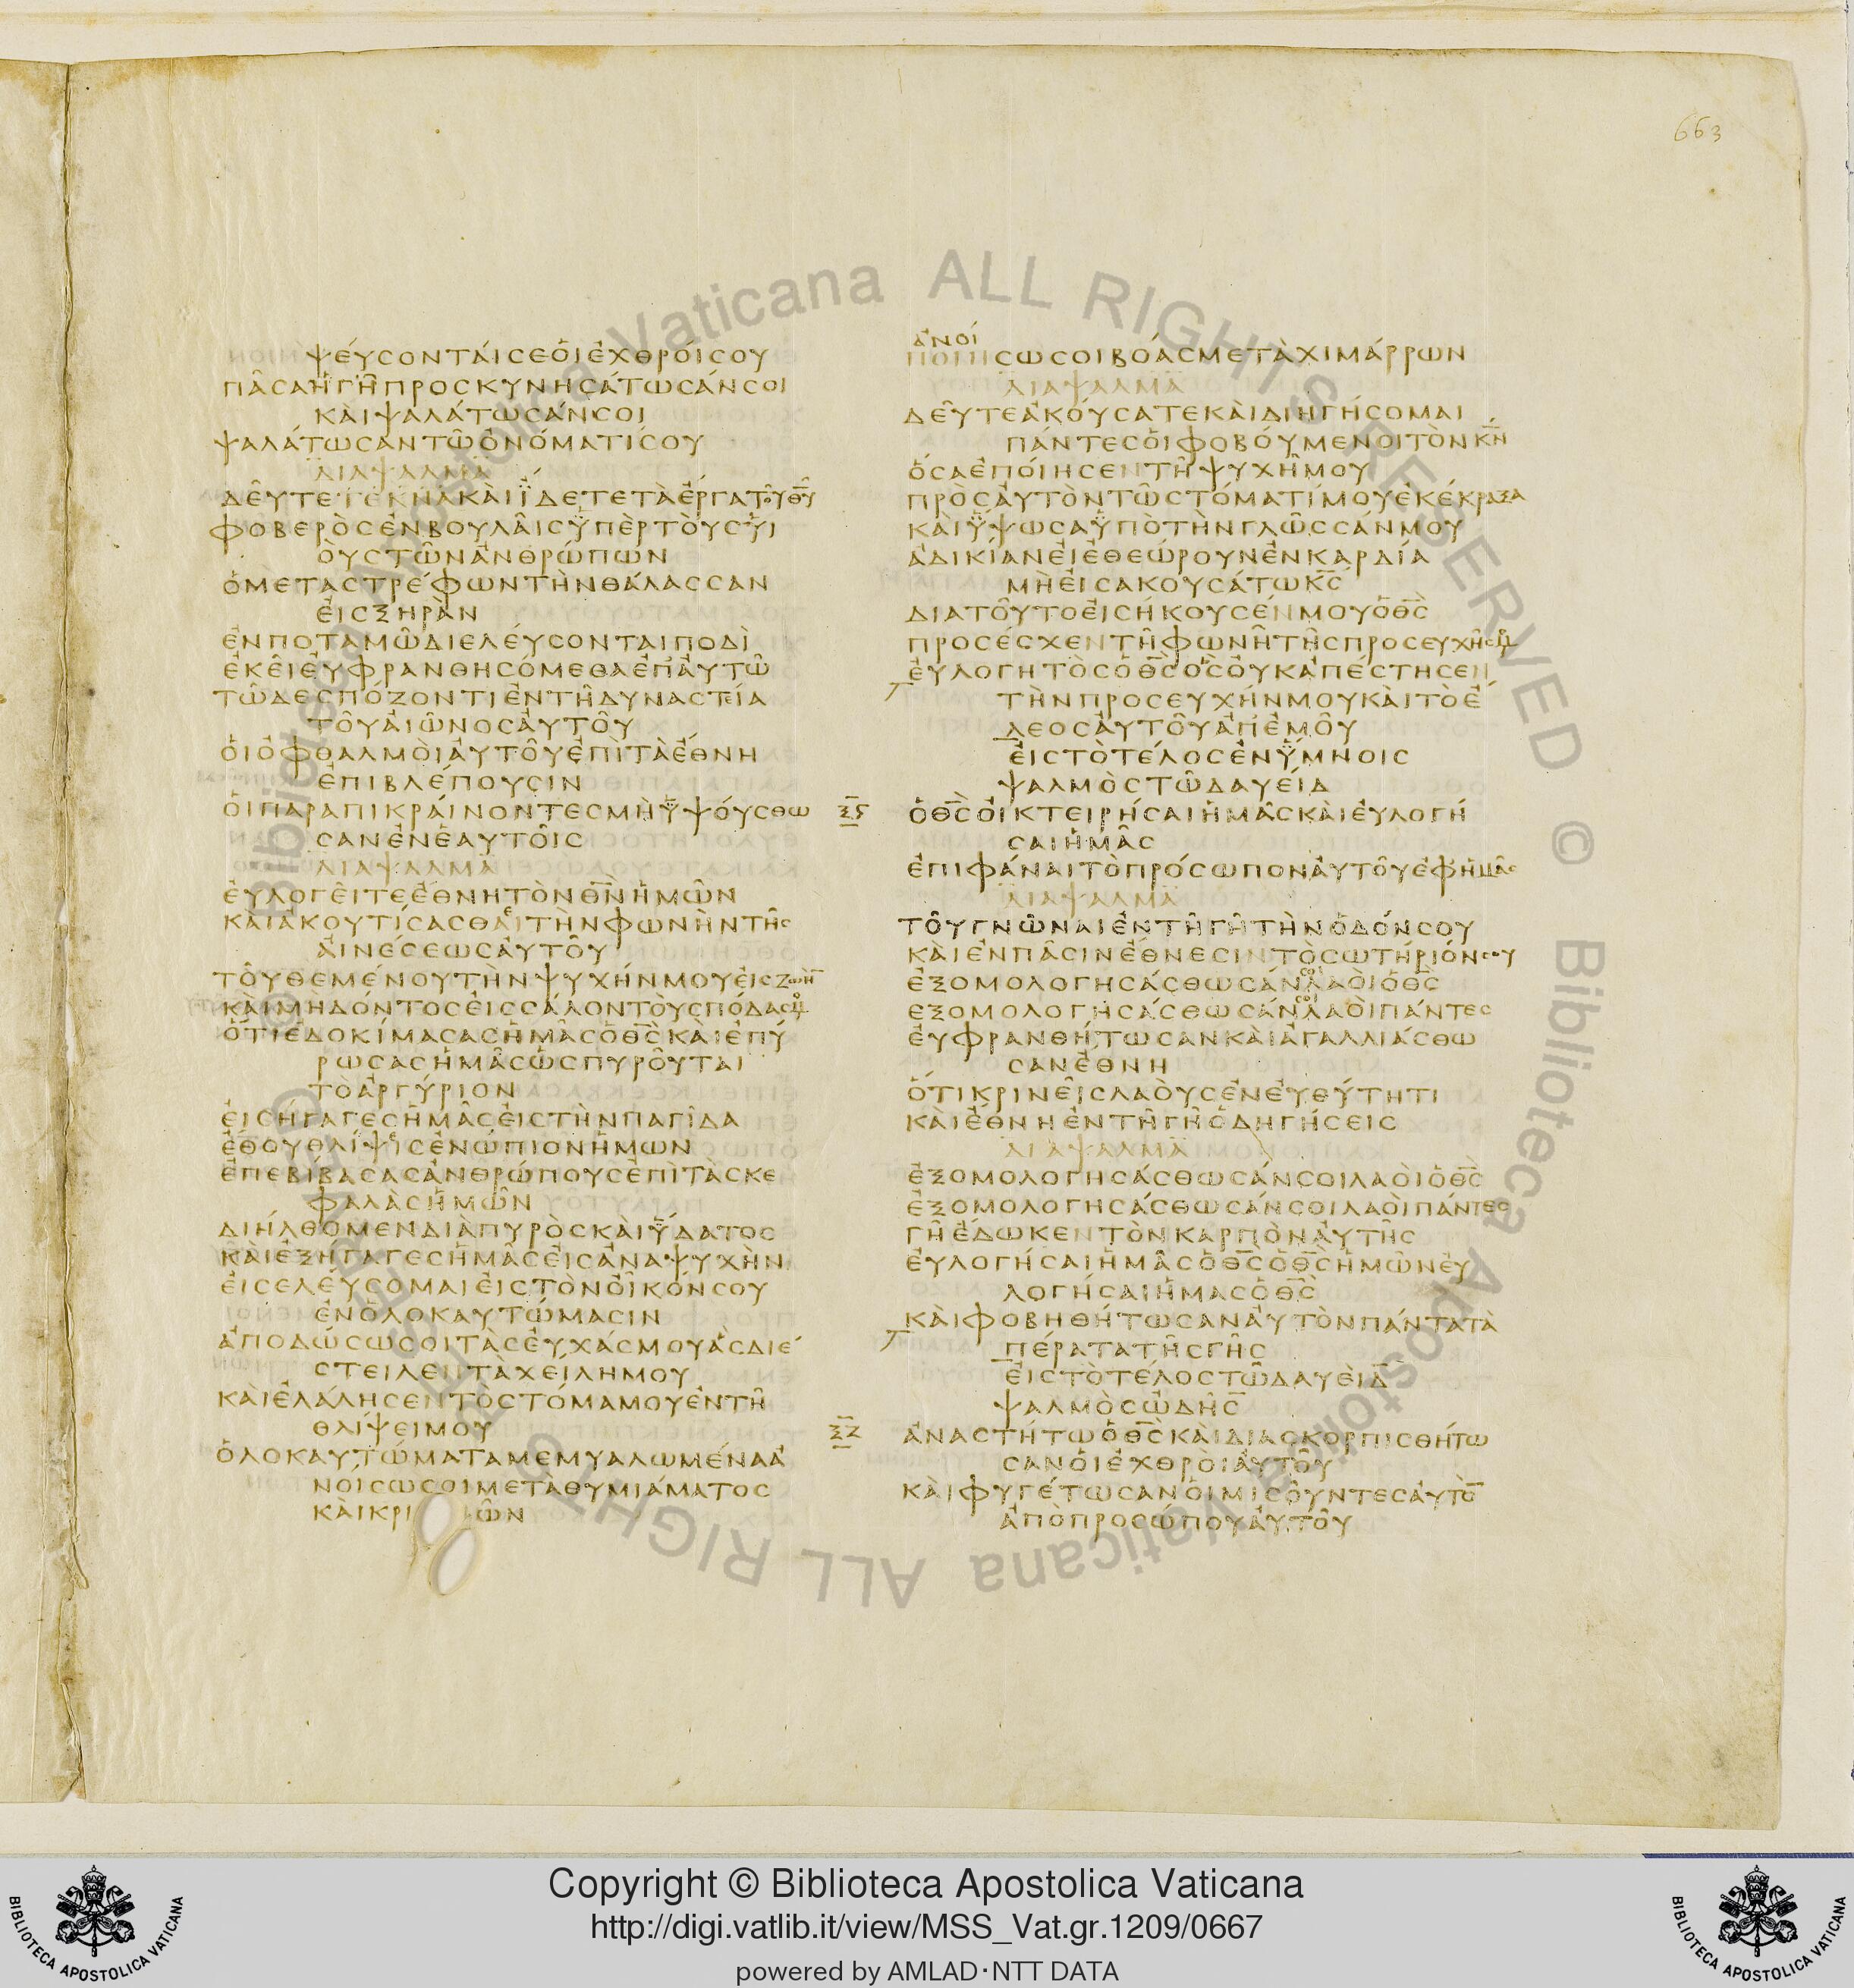 663
ψέυσονταί σε ὁι ἐχθρόι σου
πᾶσα ἡ γῆ προσκυνησάτωσάν σοι
κὰι ψαλάτωσάν σοι
ψαλάτωσαν τῶ ὀνόματί σου
διαψαλμα
δεῦτε τεκνα κὰι ἴδετε τὰ ἔργα τοῦ θῦ
φοβερὸς ἐν βουλᾶις ὑπὲρ τὸυς ὑι
ὸυς τῶν ἀνθρώπων
ὁ μεταστρέφων τὴν θάλασσαν
ἐις ξηρὰν
ἐν ποταμῶ διελέυσονται ποδὶ
ἐκεῖ ἐυφρανθησόμεθα ἐπ ἀυτῶ
τῶ δεσπόζοντι ἐν τῆ δυναστεία
τοῦ ἀιῶνος ἀυτοῦ
ὁι ὀφθαλμὸι ἀυτοῦ ἐπὶ τὰ ἔθνη
ἐπιβλέπουσιν
ὁι παραπικράινοντες μὴ ὑψόυσθω
σαν ἐν ἑαυτοῖς
διαψαλμα
ἐυλογεῖτε ἔθνη τὸν θν ἡμῶν
κὰι ἀκουτίσασθαι τὴν φωνὴν τῆς
ἀινέσεως ἀυτοῦ
τοῦ θεμένου τὴν ψυχήν μου ἐις ζωη̄
κὰι μὴ δόντος ἐις σάλον τὸυς πόδας μου
ὅτι ἐδοκίμασας ἡμᾶς ὁ θς κὰι ἐπύ
ρωσας ἡμᾶς ὡς πυροῦται
τὸ ἀργύριον
ἐισήγαγες ἡμᾶς ἐις τὴν παγῖδα
ἔθου θλίψις ἐνώπιον ἡμων
ἐπεβίβασας ἀνθρώπους ἐπὶ τὰς κε
φαλὰς ἡμῶν
διήλθομεν διὰ πυρὸς κὰι ὕδατος
κὰι ἐξήγαγες ἡμᾶς ἐις ἀναψυχὴν
ἐισελέυσομαι ἐις τὸν ὀῖκόν σου
ἐν ὁλοκαυτώμασιν
ἀποδώσω σοι τὰς ἐυχάς μου ἃς διέ
στειλεν τὰ χείλη μου
κὰι ἐλάλησεν τὸ στόμα μου ἐν τῆ
θλίψει μου
ὁλοκαυτώματα μεμυαλωμένα ἀ
νοίσω σοι μετὰ θυμιάματος
κὰι κρι ῶν
ἀνοί
ποιησω σοι βόας μετὰ χιμάρρων
διαψαλμα
δεῦτε ἀκόυσατε κὰι διηγήσομαι
πάντες ὁι φοβόυμενοι τὸν κν
ὅσα ἐπόιησεν τῆ ψυχῆ μου
πρὸς ἀυτὸν τῶ στόματί μου ἐκέκραξα
κὰι ὕψωσα ὑπὸ τὴν γλῶσσάν μου
ἀδικίαν ἐι ἐθεώρουν ἐν καρδία
μὴ ἐισακουσάτω κς
διατοῦτο ἐισήκουσέν μου ὁ θς
προσέσχεν τῆ φωνῆ τῆς προσευχῆς μου
ἐυλογητὸς ὁ θς ὃς ὀυκ ἀπέστησεν
τὴν προσευχήν μου κὰι τὸ ἔ
λεος ἀυτοῦ ἀπ ἐμοῦ
ἐις τὸ τέλος ἐν ὕμνοις
ψαλμὸς τῶ δαυείδ
ξϛ
ὁ θς ὀικτειρήσαι ἡμᾶς κὰι ἐυλογή
σαι ἡμᾶς
ἐπιφάναι τὸ πρόσωπον ἀυτοῦ ἐφ ἡμᾶς
διαψαλμα
τοῦ γνῶναι ἐν τῆ γῆ τὴν ὁδόν σου
κὰι ἐν πᾶσιν ἔθνεσιν τὸ σωτήριόν σου
ἐξομολογησάσθωσάν σοι λαὸι ὁ θς
ἐξομολογησάσθωσάν σοι λαὸι πάντες
ἐυφρανθήτωσαν κὰι ἀγαλλιάσθω
σαν ἔθνη
ὅτι κρινεῖς λαὸυς ἐν ἐυθύτητι
κὰι ἔθνη ἐν τῆ γῆ ὁδηγήσεις
διαψαλμα
ἐξομολογησάσθωσάν σοι λαὸι ὁ θς
ἐξομολογησάσθωσάν σοι λαὸι πάντες
γῆ ἔδωκεν τὸν καρπὸν ἀυτῆς
ἐυλογήσαι ἡμᾶς ὁ θς ὁ θς ἡμῶν ἐυ
λογήσαι ἡμας ὁ θς
κὰι φοβηθήτωσαν ἀυτὸν πάντα τὰ
πέρατα τῆς γῆς
ἐις τὸ τέλος τῶ δαυεὶδ
ψαλμὸς ὠδῆς
ξζ
ἀναστήτω ὁ θς κὰι διασκορπισθήτω
σαν ὁι ἐχθρὸι ἀυτοῦ
κὰι φυγέτωσαν ὁι μισοῦντες ἀυτο̄
ἀπὸ προσώπου ἀυτοῦ
Biblioteca Apostolica Vaticana ALL RIGHTS RESERVED ©
Biblioteca Apostolica Vaticana ALL RIGHTS RESERVED ©
BIBLIOTECA APOSTOLICA VATICANA
Copyright © Biblioteca Apostolica Vaticana
http://digi.vatlib.it/view/MSS_Vat.gr.1209/0667
powered by AMLAD·NTT DATA
BIBLIOTECA APOSTOLICA VATICANA